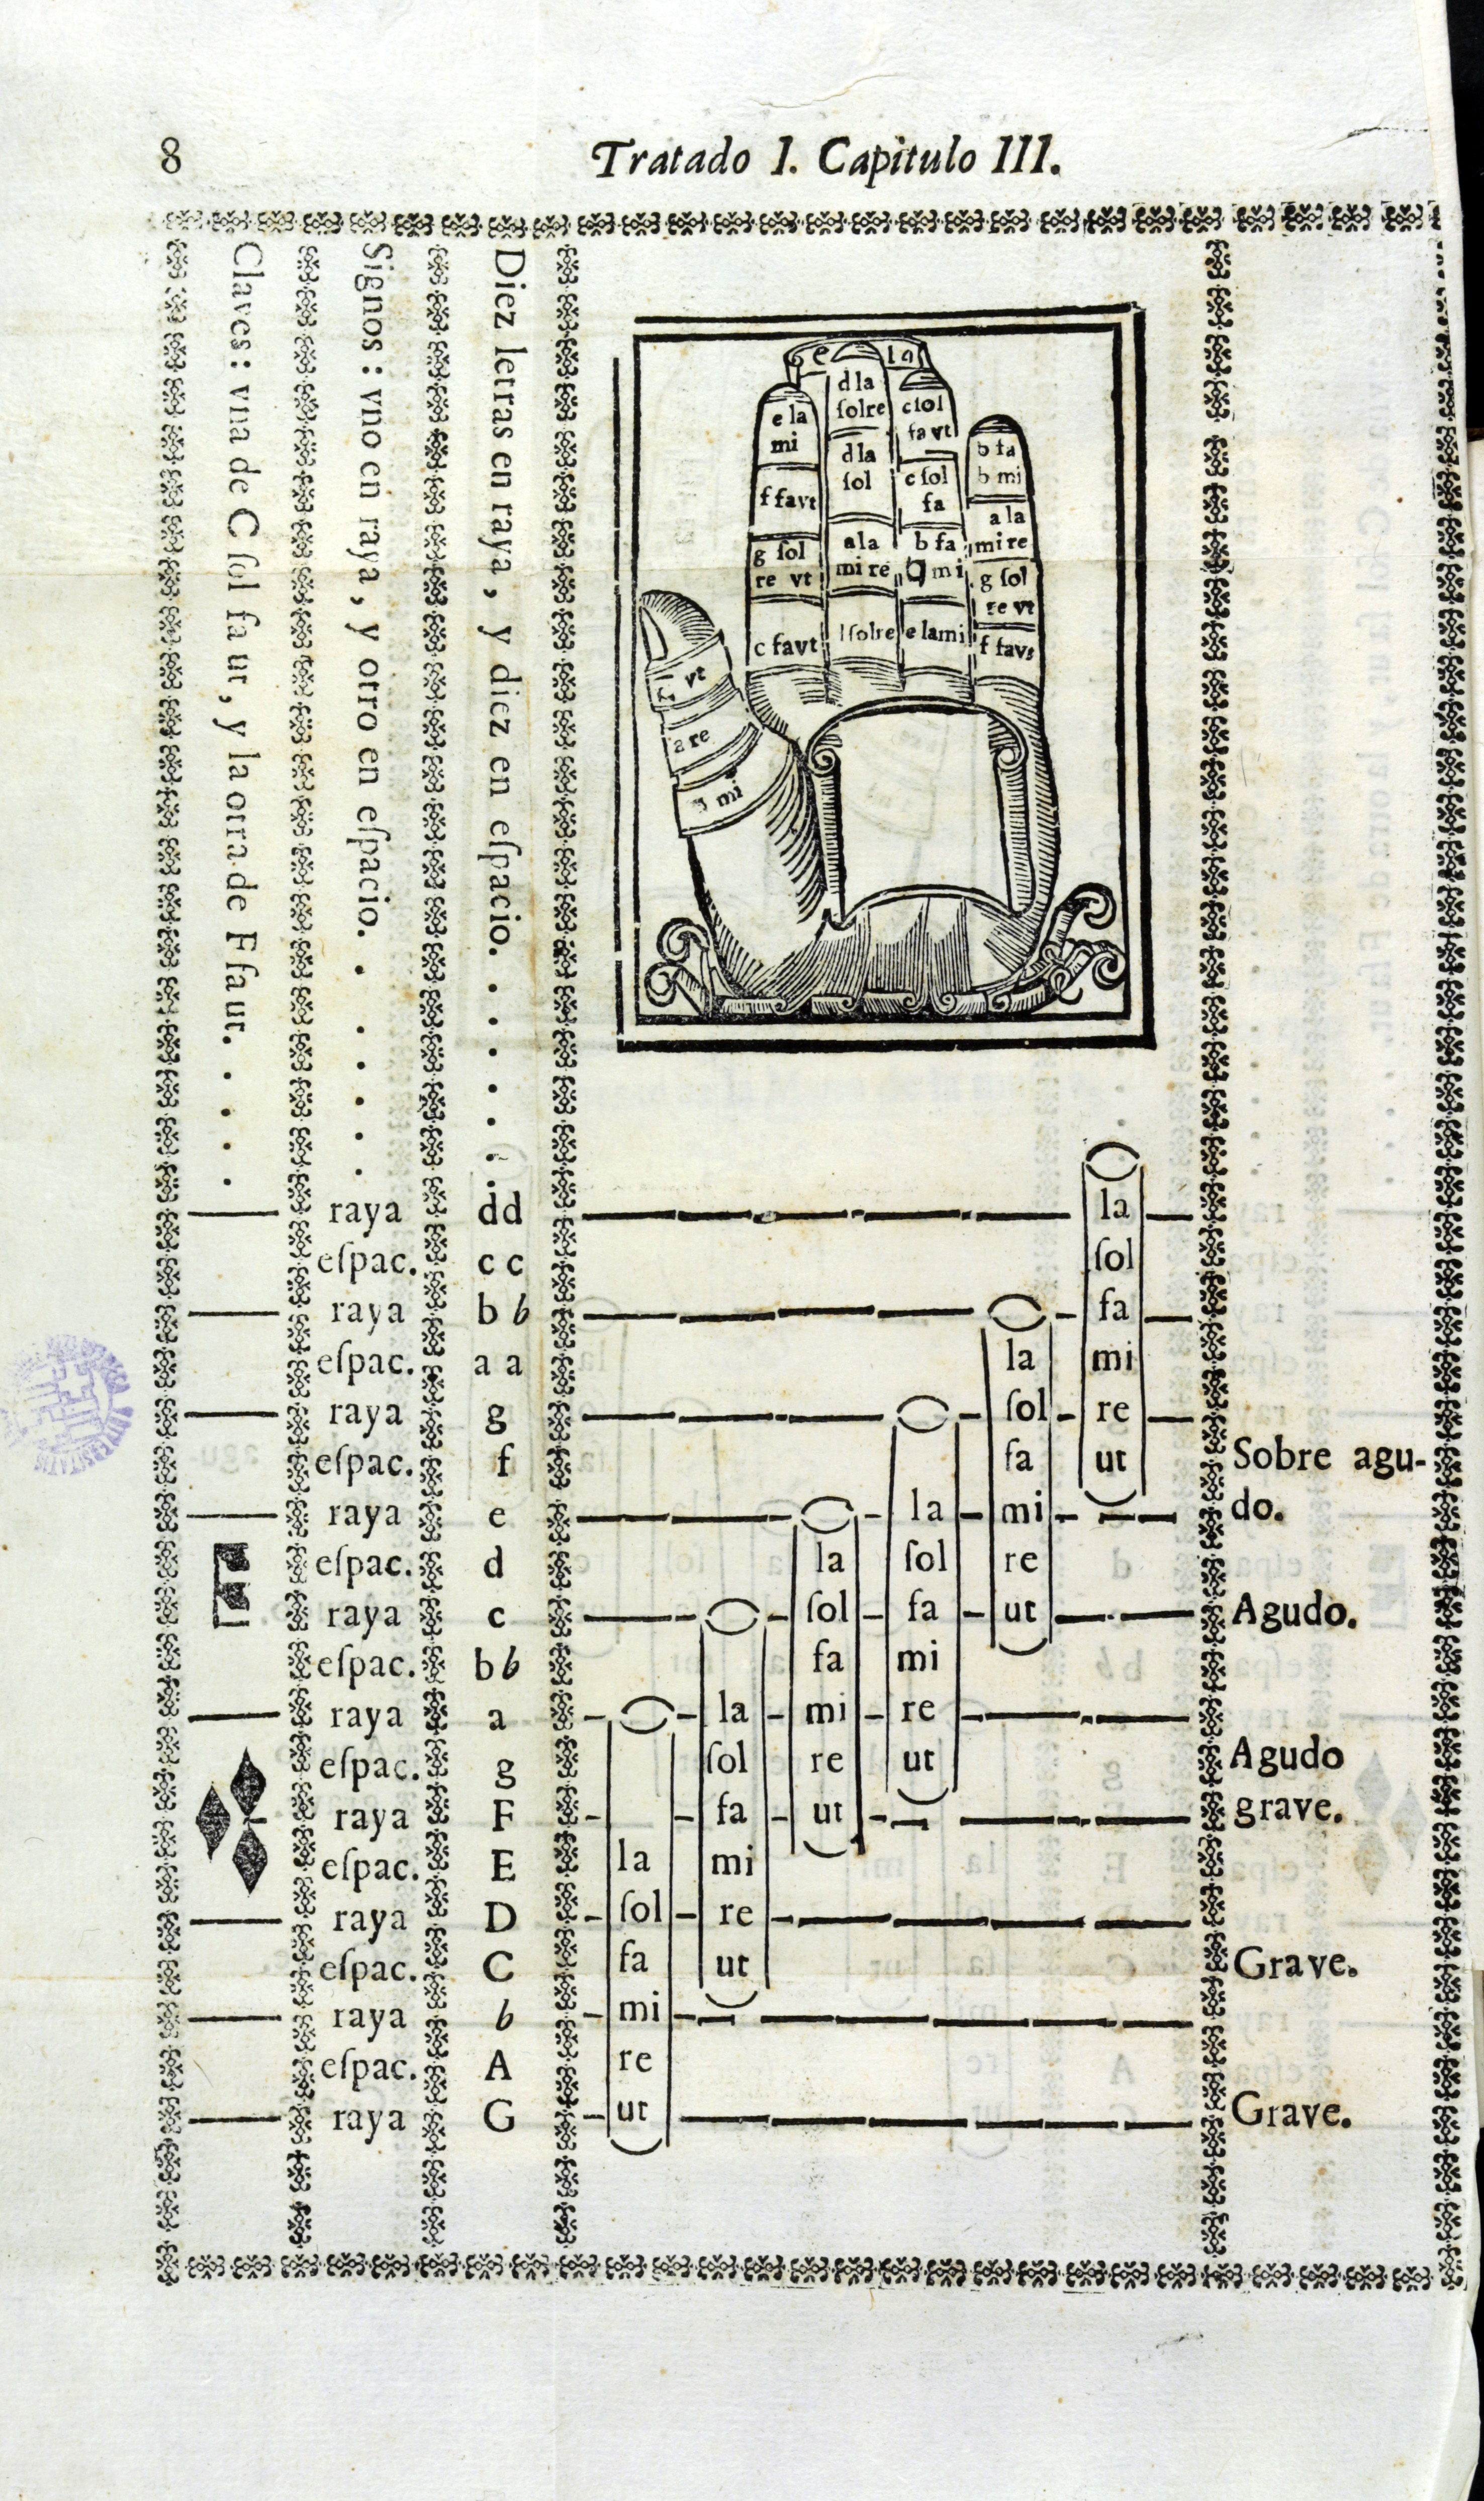 8
Tratado I. Capitulo III.
Claves: vna de C ſol fa ur, y la otra de F faut. . . . .
Signos: vno en raya, y otro en eſpacio. . . . . .
Diez letras en raya, y diez en eſpacio. . . . . . .
e la
e la
mi
f favt
g ſol
re vt
c favt
d la
ſolre
d la
ſol
a la
mi re
ſolre
c ſol
fa vt
c ſol
fa
b fa
mi
e lami
b fa
b mi
a la
mi re
g ſol
re vt
f favt
vt
a re
mi
raya dd la
eſpac. c c ſol
raya b b fa
eſpac. a a la mi
raya g ſol re
eſpac. f fa ut Sobre agu-
raya e la mi do.
eſpac. d la ſol re
raya c ſol fa ut Agudo.
eſpac. b b fa mi
raya a la mi re
eſpac. g ſol re ut Agudo
raya F fa ut grave.
eſpac. E la mi
raya D ſol re
eſpac. C fa ut Grave.
raya b mi
eſpac. A re
raya G ut Grave.